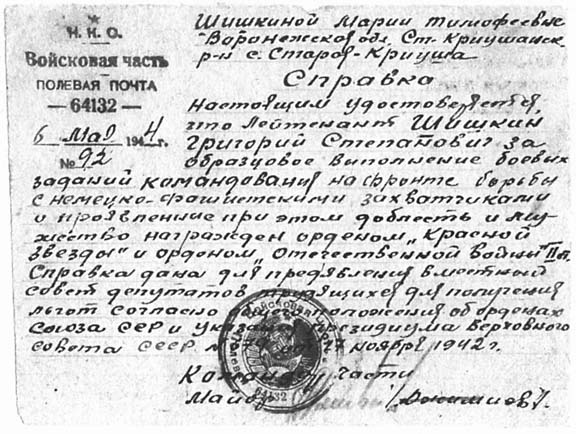 Н. К. О.
Войсковая часть
ПОЛЕВАЯ ПОЧТА
— 64132 —
6 мая 1944 г.
№ 92
Шишкиной Марии Тимофеевне
Воронежская обл. Ст-Криушанск.
р-н с. Старая-Криуша
Справка
Настоящим удостоверяется
что Лейтенант Шишкин
Григорий Степанович за
образцовое выполнение боевых
заданий командования на фронте борьбы
с немецко-фашистскими захватчиками
и проявленные при этом доблесть и му-
жество награжден орденом „Красной
Звезды" и орденом „Отечественной Войны" II ст.
Справка дана для предявления в местный
совет депутатов трудящихся для получения
льгот согласно положения об орденах
Союза ССР и Указа Президиума Верховного
совета СССР ноября 1942 г.
Командир части
Майор
64132